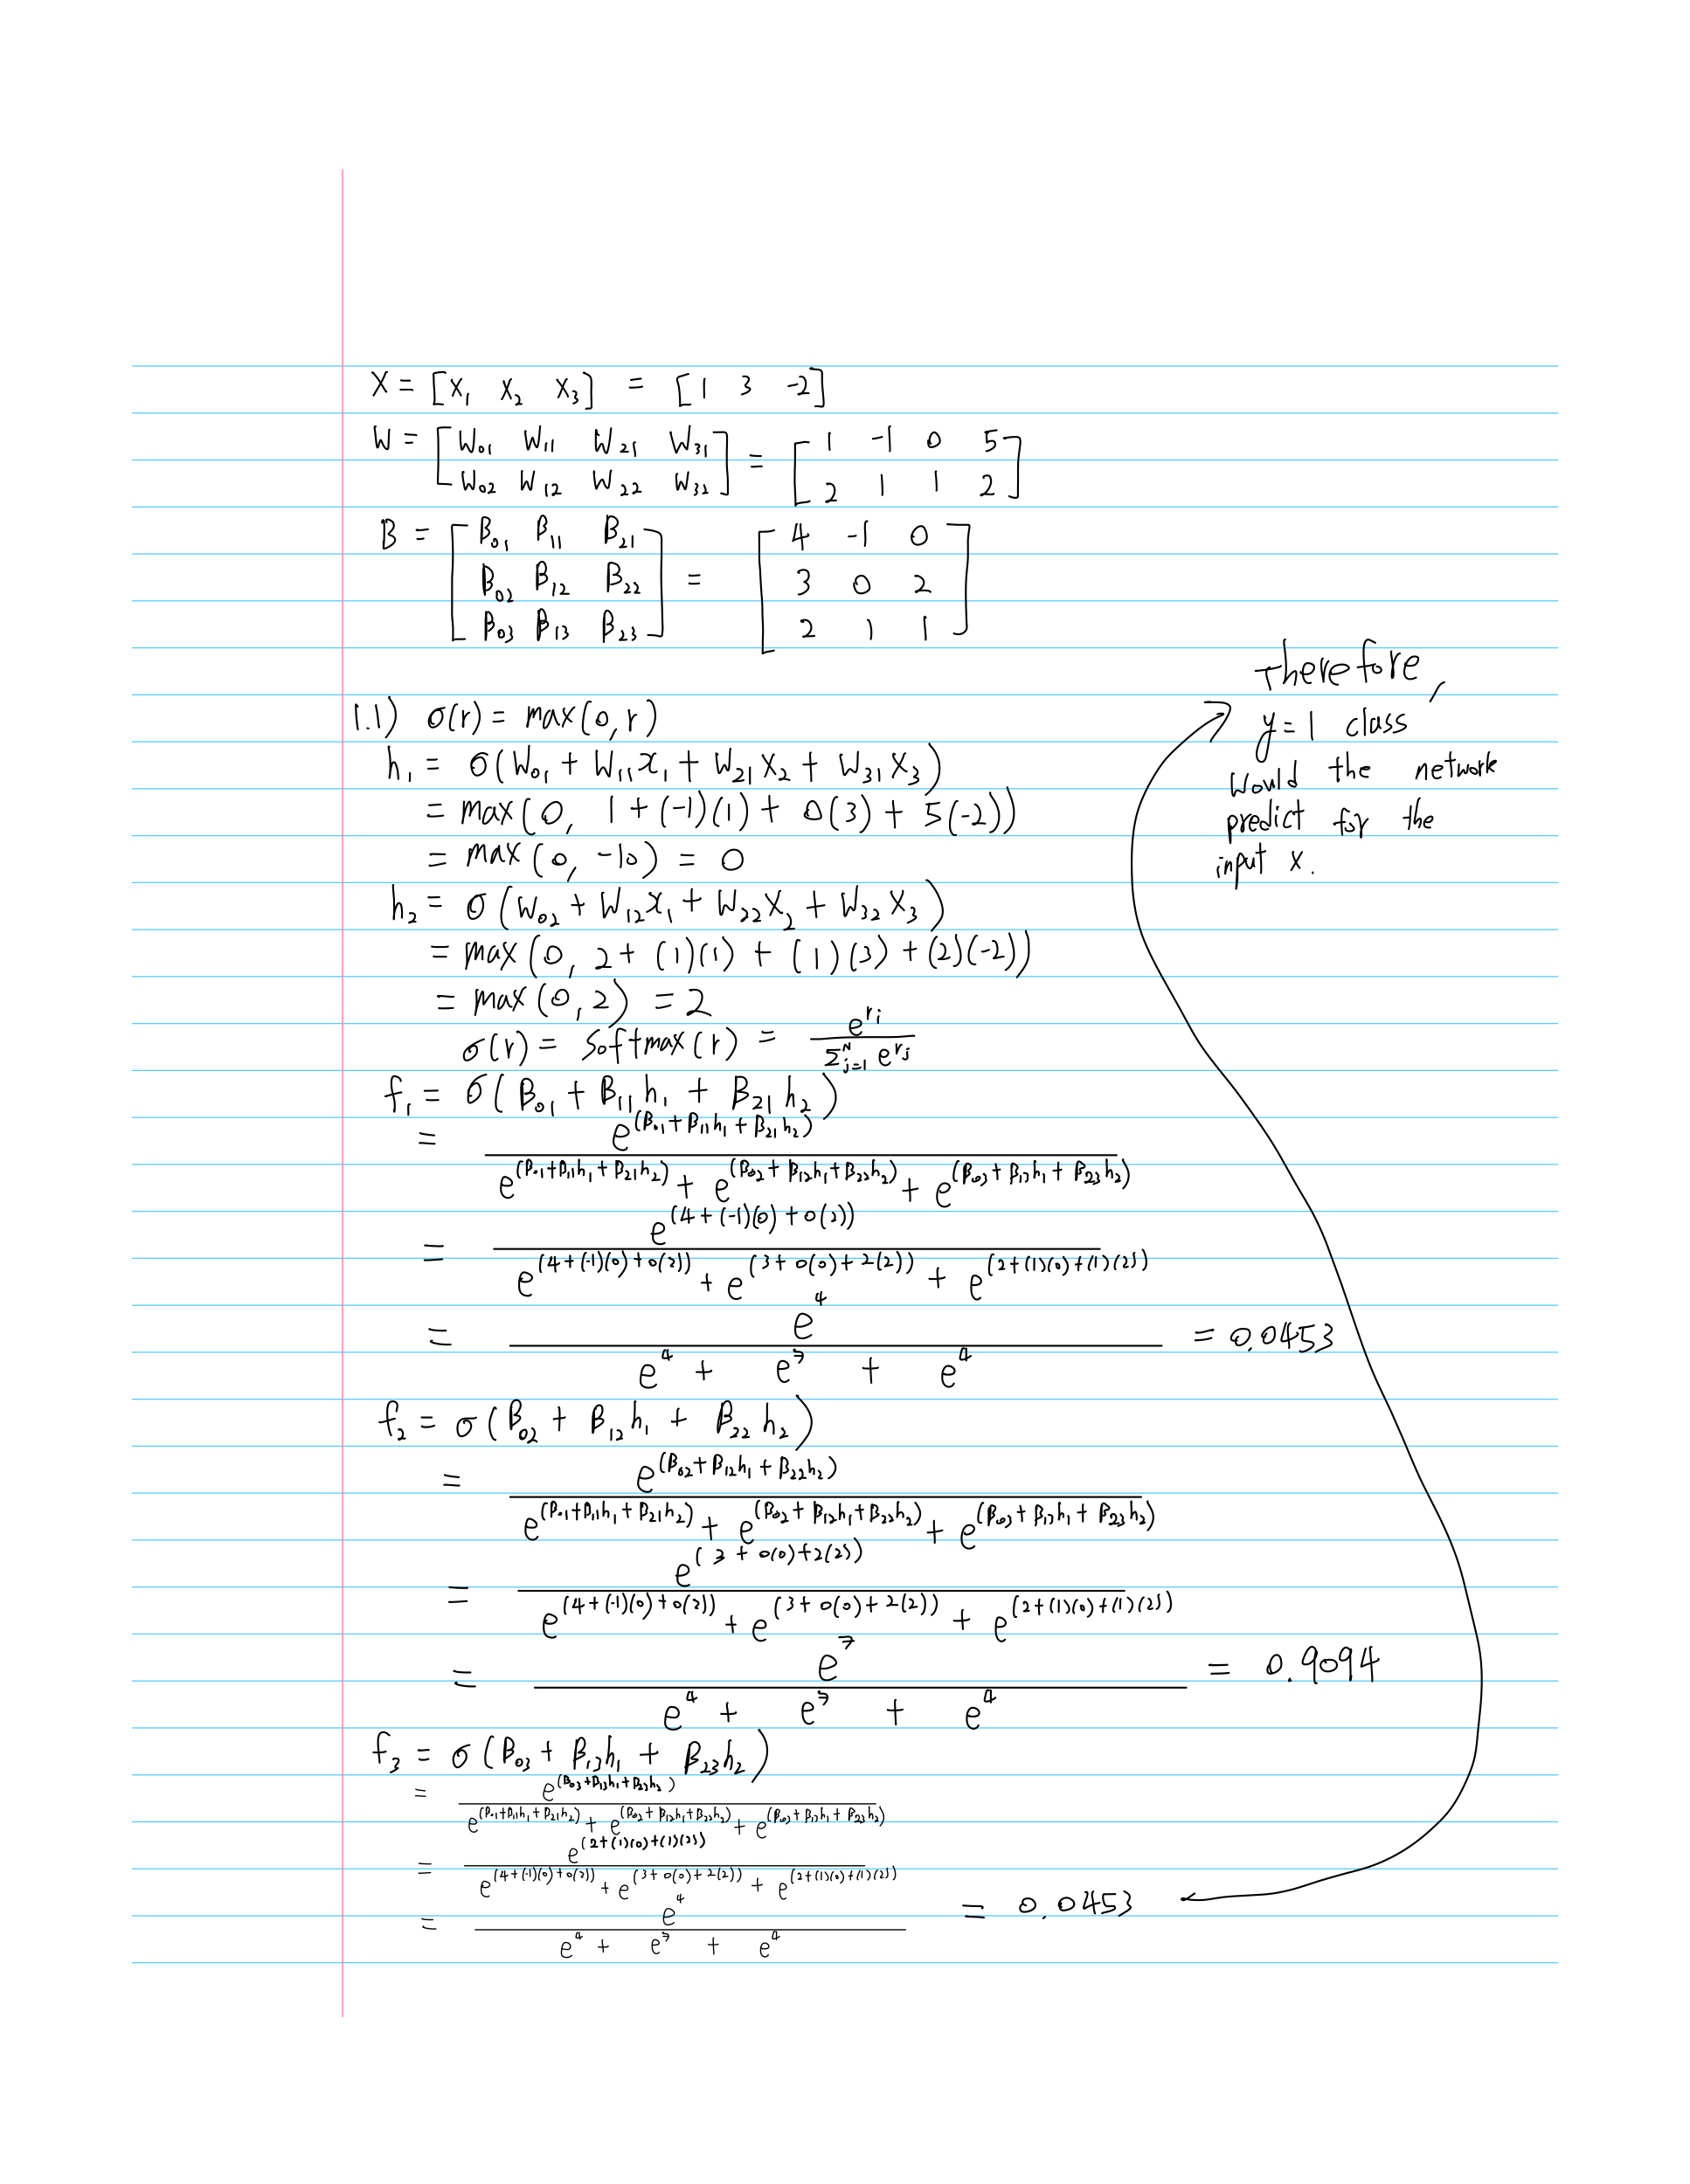 X = [x₁ x₂ x₃] = [1 3 -2]
W = [W₀₁ W₁₁ W₂₁ W₃₁ = [1 -1 0 5
W₀₂ W₁₂ W₂₂ W₃₂] 2 1 1 2]
B = [β₀₁ β₁₁ β₂₁ [4 -1 0
β₀₂ β₁₂ β₂₂ = 3 0 2
β₀₃ β₁₃ β₂₃] 2 1 1]
1.1) σ(r) = max(0,r)
h₁ = σ(W₀₁ + W₁₁x₁ + W₂₁x₂ + W₃₁x₃)
= max(0, 1 + (-1)(1) + 0(3) + 5(-2))
= max(0, -10) = 0
h₂ = σ(W₀₂ + W₁₂x₁ + W₂₂x₂ + W₃₂x₃)
= max(0, 2 + (1)(1) + (1)(3) + (2)(-2))
= max(0,2) = 2
σ(r) = softmax(r) = e^(rᵢ) / Σ^N_(j=1) e^(rⱼ)
f₁ = σ(β₀₁ + β₁₁h₁ + β₂₁h₂)
= e^(β₀₁+β₁₁h₁+β₂₁h₂)
e^(β₀₁+β₁₁h₁+β₂₁h₂) + e^(β₀₂+β₁₂h₁+β₂₂h₂) + e^(β₀₃+β₁₃h₁+β₂₃h₂)
= e^(4+(-1)(0)+0(2))
e^(4+(-1)(0)+0(2)) + e^(3+0(0)+2(2)) + e^(2+(1)(0)+(1)(2))
= e⁴ = 0.0453
e⁴ + e⁷ + e⁴
f₂ = σ(β₀₂ + β₁₂h₁ + β₂₂h₂)
= e^(β₀₂+β₁₂h₁+β₂₂h₂)
e^(β₀₁+β₁₁h₁+β₂₁h₂) + e^(β₀₂+β₁₂h₁+β₂₂h₂) + e^(β₀₃+β₁₃h₁+β₂₃h₂)
= e^(3+0(0)+2(2))
e^(4+(-1)(0)+0(2)) + e^(3+0(0)+2(2)) + e^(2+(1)(0)+(1)(2))
= e⁷ = 0.9094
e⁴ + e⁷ + e⁴
f₃ = σ(β₀₃ + β₁₃h₁ + β₂₃h₂)
= e^(β₀₃+β₁₃h₁+β₂₃h₂)
e^(β₀₁+β₁₁h₁+β₂₁h₂) + e^(β₀₂+β₁₂h₁+β₂₂h₂) + e^(β₀₃+β₁₃h₁+β₂₃h₂)
= e^(2+(1)(0)+(1)(2))
e^(4+(-1)(0)+0(2)) + e^(3+0(0)+2(2)) + e^(2+(1)(0)+(1)(2))
= e⁴ = 0.0453
e⁴ + e⁷ + e⁴
Therefore,
y=1 class
would the network
predict for the
input x.